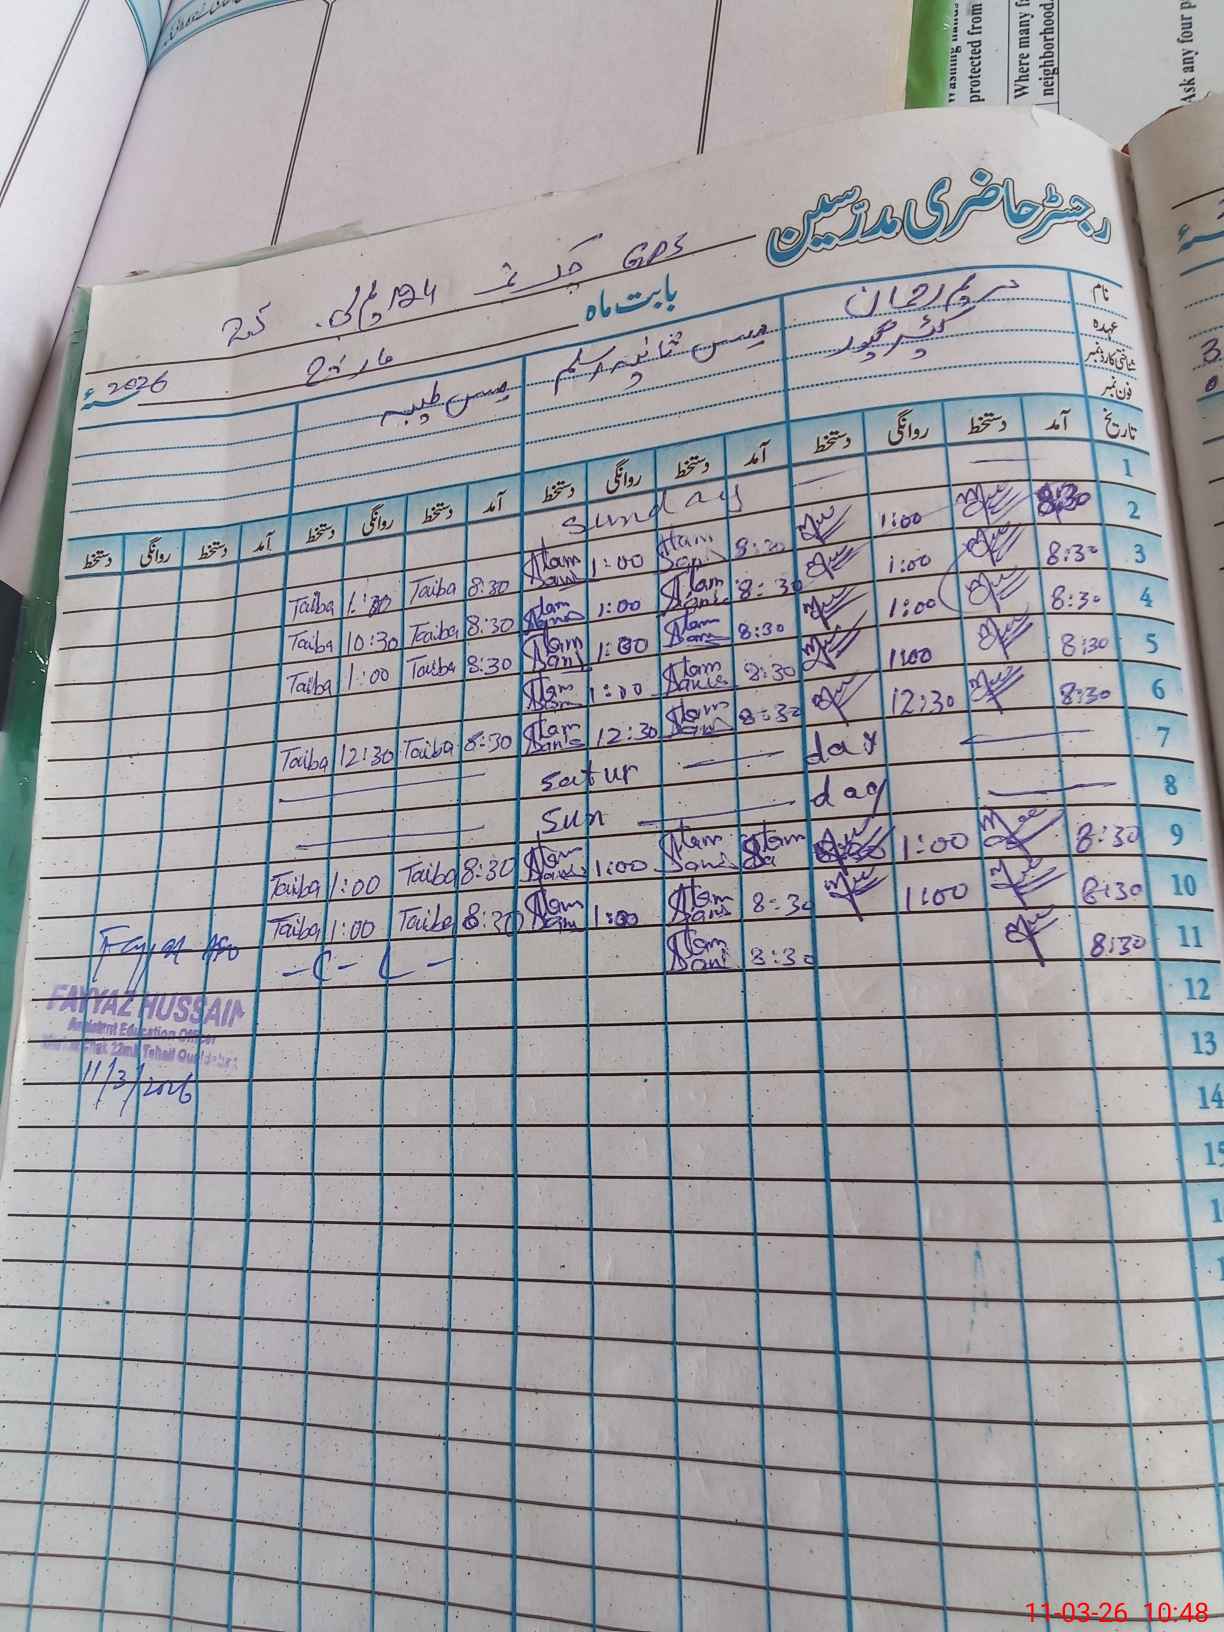 protected from
Where many fa
neighborhood.
Ask any four p
رجسٹر حاضری مدرّسین
GPS چک نمبر
بابت ماہ
مارچ
2026ء
نام
عہدہ
شناختی کارڈ نمبر
فون نمبر
مریم رحمان
مس ثانیہ اسلم
مس طیبہ
تاریخ آمد دستخط روانگی دستخط آمد دستخط روانگی دستخط آمد دستخط روانگی دستخط آمد دستخط روانگی دستخط
1 Sunday
2 8:30 1:00 8:30 Aslam Sania 1:00 Aslam Sania 8:30 Taiba 1:30 Taiba
3 8:30 1:00 8:30 Aslam Sania 1:00 Aslam Sania 8:30 Taiba 10:30 Taiba
4 8:30 1:00 8:30 Aslam Sani 1:00 Aslam Sani 8:30 Taiba 1:00 Taiba
5 8:30 1:00 8:30 Aslam Sania 1:00 Aslam Sania
6 8:30 12:30 8:30 Aslam Sani 12:30 Aslam Sania 8:30 Taiba 12:30 Taiba
7 Satur day
8 Sun day
9 8:30 1:00 Aslam Sania 1:00 Aslam Sania 8:30 Taiba 1:00 Taiba
10 8:30 1:00 8:30 Aslam Sani 1:00 Aslam Sani 8:30 Taiba 1:00 Taiba
11 8:30 8:30 Aslam Sani
12
13
14
FAYYAZ HUSSAIN
Assistent Education Officer
11/3/2026
11-03-26 10:48